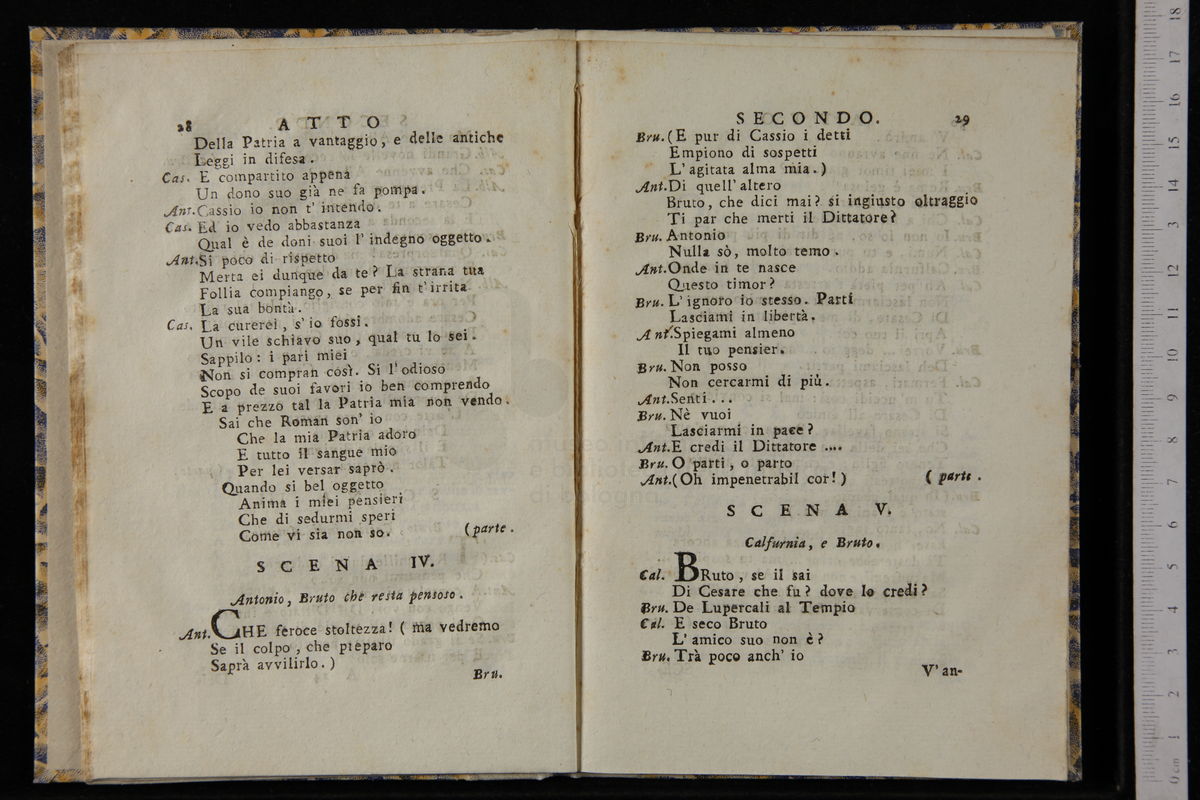 28 ATTO
Della Patria a vantaggio, e delle antiche
Leggi in difesa.
Cas. E compartito appena
Un dono suo già ne fa pompa.
Ant. Cassio io non t' intendo.
Cas. Ed io vedo abbastanza
Qual è de doni suoi l' indegno oggetto.
Ant. Si poco di rispetto
Merta ei dunque da te? La strana tua
Follia compiango, se per fin t' irrita
La sua bontà.
Cas. La curerei, s' io fossi.
Un vile schiavo suo, qual tu lo sei.
Sappilo: i pari miei
Non si compran così. Si l' odioso
Scopo de suoi favori io ben comprendo
E a prezzo tal la Patria mia non vendo.
Sai che Roman son' io
Che la mia Patria adoro
E tutto il sangue mio
Per lei versar saprò.
Quando si bel oggetto
Anima i miei pensieri
Che di sedurmi speri
Come vi sia non so. (parte.
SCENA IV.
Antonio, Bruto che resta pensoso.
Ant. CHE feroce stoltezza! ( ma vedremo
Se il colpo, che preparo
Saprà avvilirlo.)
Bru.
SECONDO. 29
Bru. (E pur di Cassio i detti
Empiono di sospetti
L' agitata alma mia.)
Ant. Di quell' altero
Bruto, che dici mai? si ingiusto oltraggio
Ti par che merti il Dittatore?
Bru. Antonio
Nulla sò, molto temo.
Ant. Onde in te nasce
Questo timor?
Bru. L' ignoro io stesso. Parti
Lasciami in libertà.
Ant. Spiegami almeno
Il tuo pensier.
Bru. Non posso
Non cercarmi di più.
Ant. Senti...
Bru. Nè vuoi
Lasciarmi in pace?
Ant. E credi il Dittatore ....
Bru. O parti, o parto
Ant. (Oh impenetrabil cor!) (parte.
SCENA V.
Calfurnia, e Bruto.
Cal. BRuto, se il sai
Di Cesare che fu? dove lo credi?
Bru. De Lupercali al Tempio
Cal. E seco Bruto
L' amico suo non è?
Bru. Trà poco anch' io
V' an-